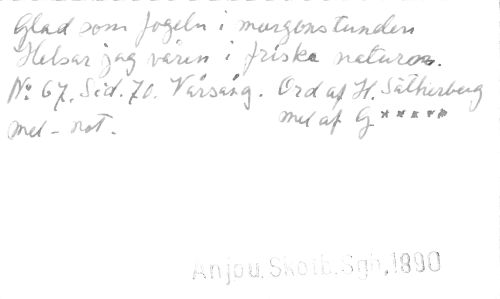 Glad som fogeln i morgonstunden
Helsar jag våren i friska naturen.
No 67, Sid. 70. Vårsång. Ord af H. Sätherberg
mel-not. mel af G*****
Anjou, Skolb. Sgb, 1890